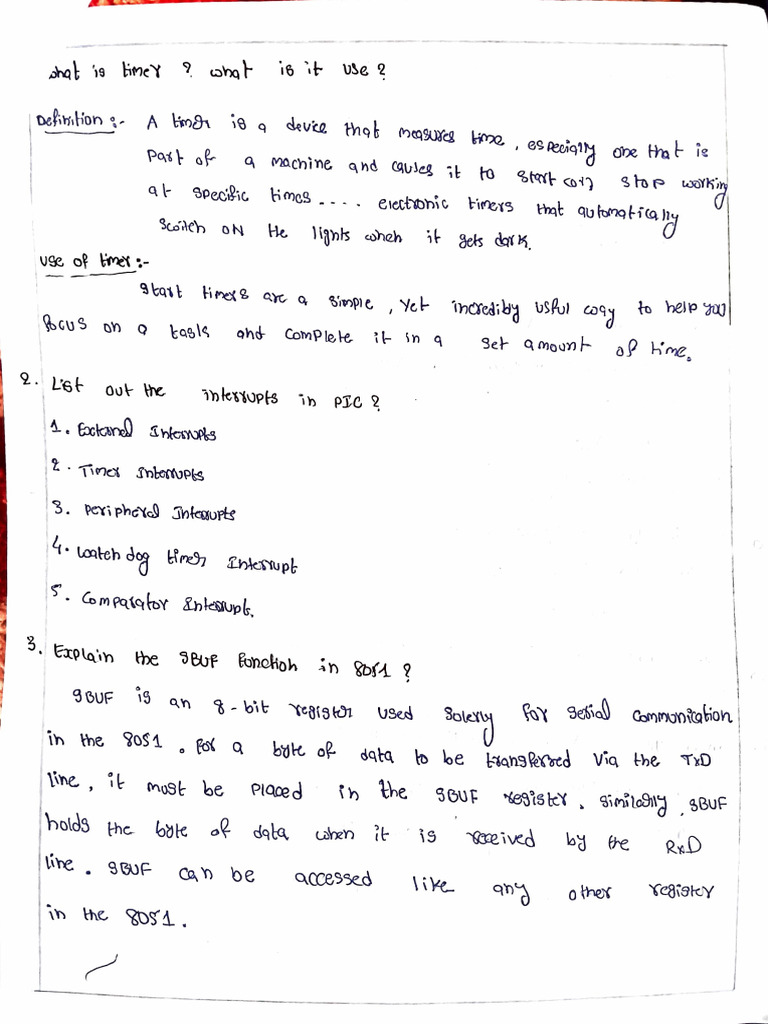 what is timer ? what is it use ?
Definition :- A timer is a device that measures time, especially one that is
part of a machine and causes it to start (or) stop working
at specific times .... electronic timers that automatically
switch ON the lights when it gets dark.
Use of timer :-
Start timers are a simple, yet incrediby usful way to help you
focus on a task and complete it in a set amount of time.
2. List out the interrupts in PIC ?
1. External Interrupts
2. Timer Interrupts
3. Peripheral Interrupts
4. Watch dog timer Interrupt
5. Comparator Interrupt.
3. Explain the SBUF function in 8051 ?
SBUF is an 8-bit register used solerly for serial communication
in the 8051 . For a byte of data to be transferred via the TxD
line, it must be placed in the SBUF register. similarly, SBUF
holds the byte of data when it is received by the RxD
line. SBUF can be accessed like any other register
in the 8051.